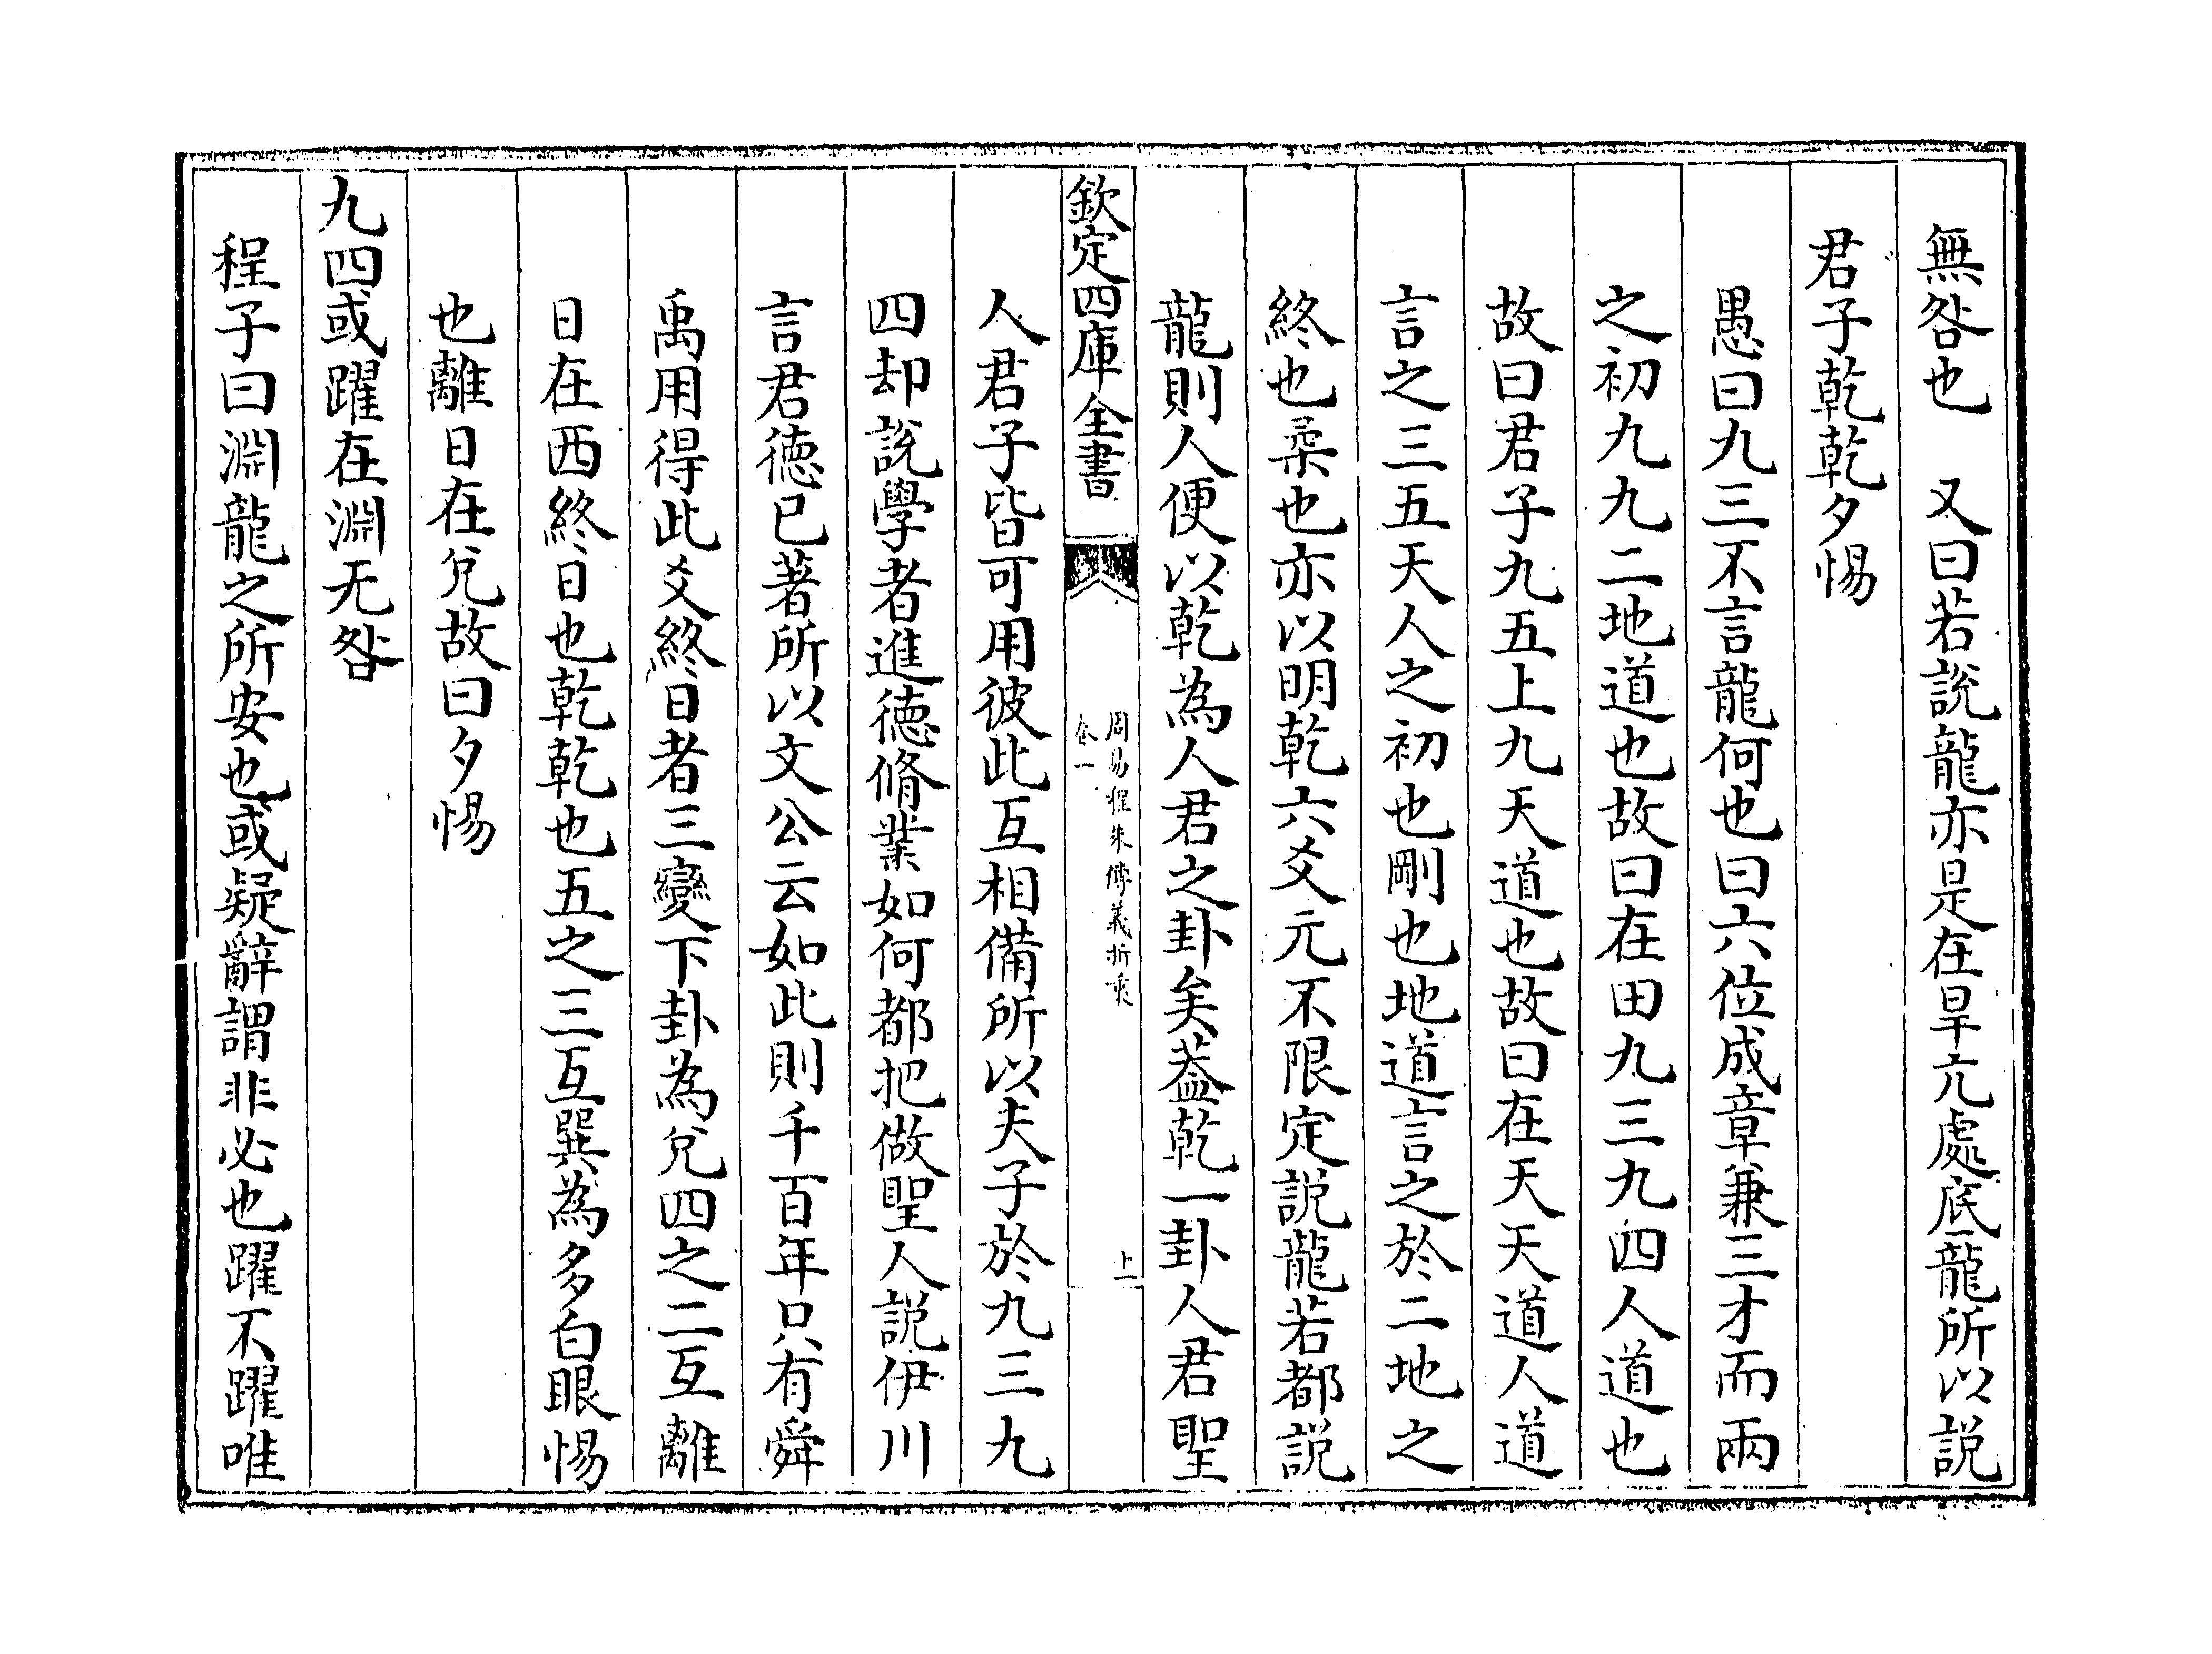 無咎也　又曰若説龍亦是在旱亢處底龍所以説
君子乾乾夕惕
愚曰九三不言龍何也曰六位成章兼三才而兩
之初九九二地道也故曰在田九三九四人道也
故曰君子九五上九天道也故曰在天天道人道
言之三五天人之初也剛也地道言之於二地之
終也柔也亦以明乾六爻元不限定説龍若都説
龍則人便以乾為人君之卦矣葢乾一卦人君聖
欽定四庫全書
周易程朱傳義折衷
卷一
上
人君子皆可用彼此互相備所以夫子於九三九
四却説學者進德脩業如何都把做聖人説伊川
言君德已著所以文公云如此則千百年只有舜
禹用得此爻終日者三變下卦為兌四之二互離
日在西終日也乾乾也五之三互巽為多白眼惕
也離日在兌故曰夕惕
九四或躍在淵无咎
程子曰淵龍之所安也或疑辭謂非必也躍不躍唯